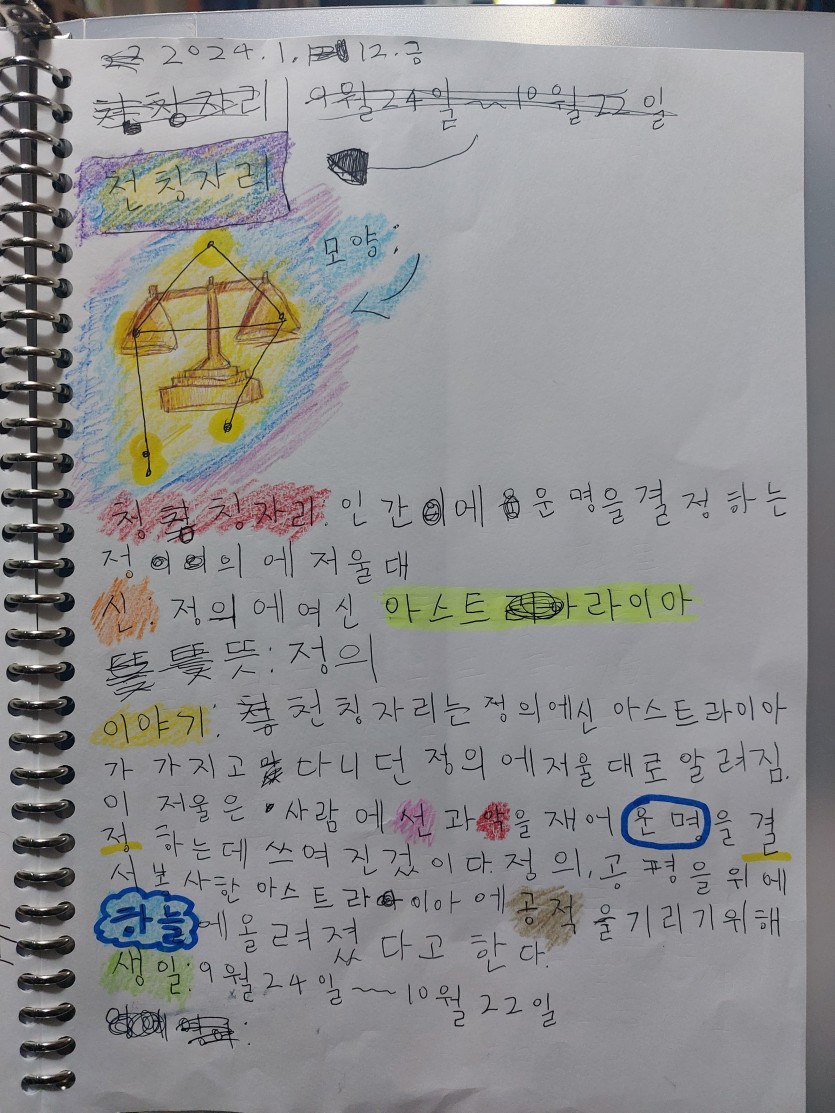 2024.1. 12.금
9월24일~10월22일
천칭자리
모양:
칭자리: 인간에 운명을 결정하는
정의에 저울대
신: 정의에여신 아스트라이아
뜻: 정의
이야기: 천칭자리는 정의에신 아스트라이아
가 가지고 다니던 정의에저울대로 알려짐.
이 저울은 사람에 선과 악을 재어 운명을 결
정하는데 쓰여진것이다. 정의, 공평을 위에
서 사한 아스트라이아에 공적을 기리기위해
하늘에 올려졌다고 한다.
생일: 9월24일~10월22일